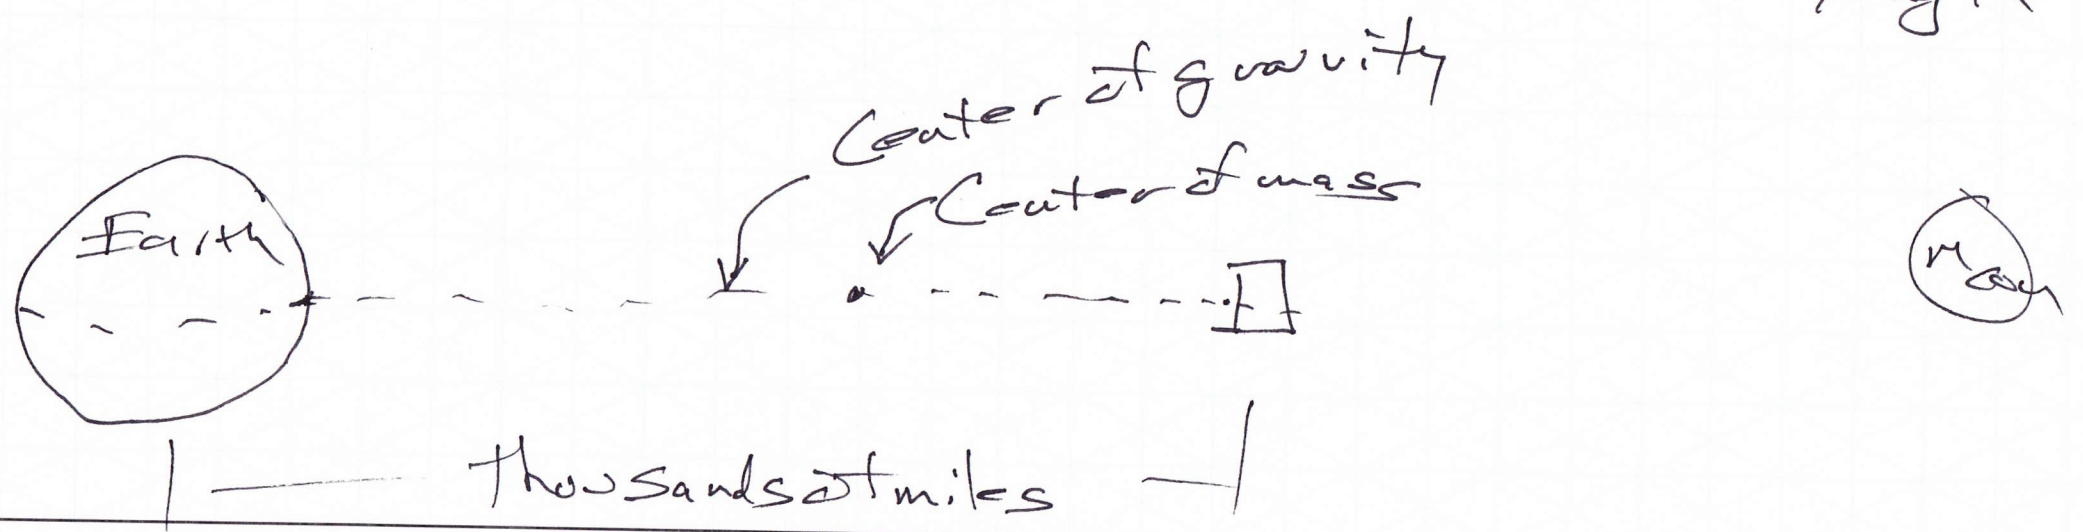 Center of gravity
Center of mass
Earth
Moon
Thousands of miles